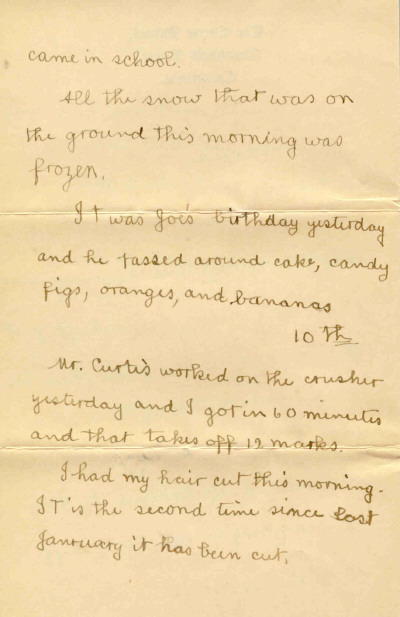 came in school.
All the snow that was on
the ground this morning was
frozen.
It was Joe's birthday yesterday
and he passed around cake, candy
figs, oranges, and bananas
10 th
Mr. Curtis worked on the crusher
yesterday and I got in 60 minutes
and that takes off 12 marks.
I had my hair cut this morning.
IT is the second time since last
Janruary it has been cut.